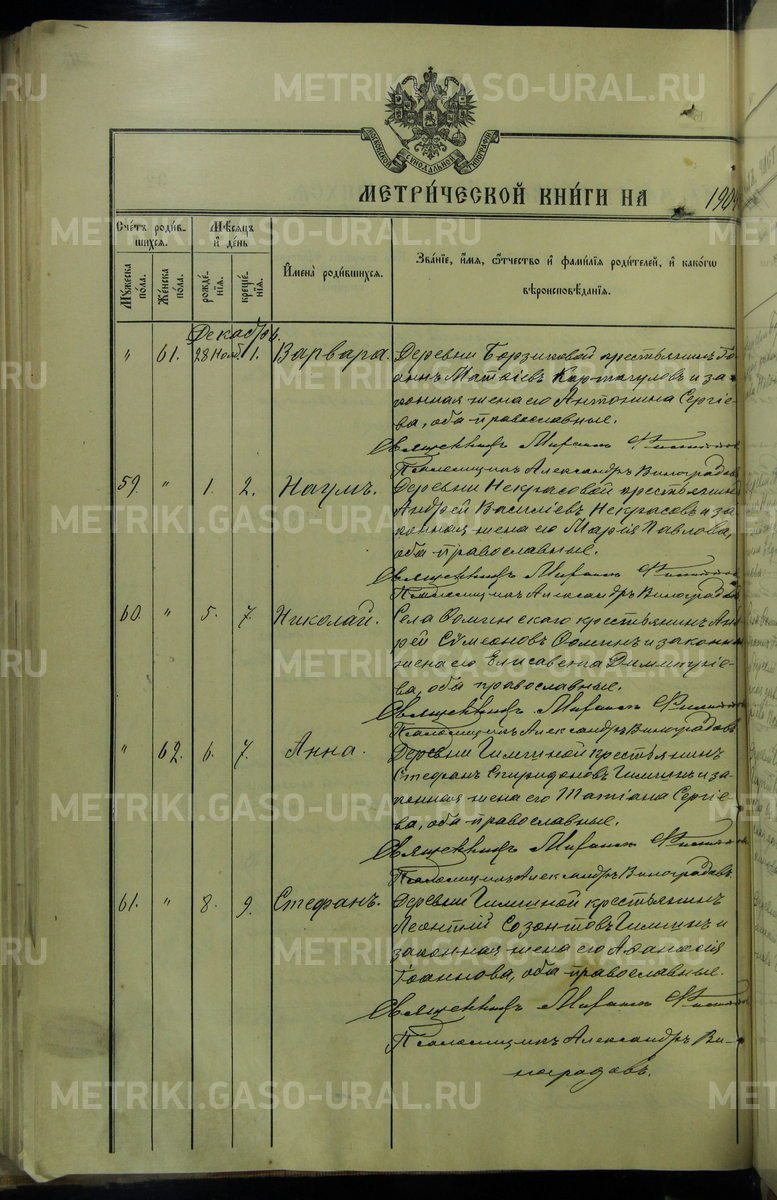 МОСКОВСКОЙ СУНОДАЛЬНОЙ ТИПОГРАФІИ
МЕТРИ́ЧЕСКОЙ КНИ́ГИ НА 190
Сче́тъ роди́в-
шихся.
Мѣ́сяцъ
и҆ де́нь
Му́жеска
по́ла.
Же́нска
по́ла.
рожде́-
нїѧ.
креще́-
нїѧ.
И҆мена̀ роди́вшихся.
Зва́нїе, и҆́мѧ, ѻ҆́тчество и҆ фами́лїѧ роди́телей, и҆ како́гѡ
вѣроисповѣ́данїѧ.
Декабрь.
" 61. 28 Нояб. 1. Варвара. Деревни крестьянинъ Іо-
аннъ Матѳіевъ и за-
конная жена его Антонина Сергіе-
ва, оба православные.
Священникъ
Псаломщикъ Александръ Виноградовъ
59. " 1. 2. Наумъ. Деревни Некрасовой крестьянинъ
Андрей Василіевъ Некрасовъ и за-
конная жена его Марія Павлова,
оба православные.
Священникъ
Псаломщикъ Александръ Виноградовъ
60. " 5. 7. Николай. Села Ѳоминскаго крестьянинъ Анд-
рей Сѵмеоновъ Ѳоминъ и законная
жена его Елисавета Димитріе-
ва, оба православные.
Священникъ
Псаломщикъ Александръ Виноградовъ
" 62. 6. 7. Анна. Деревни Гилиной крестьянинъ
Стефанъ Спиридоновъ Гилинъ и за-
конная жена его Татіана Сергіе-
ва, оба православные.
Священникъ
Псаломщикъ Александръ Виноградовъ
61. " 8. 9. Стефанъ. Деревни Гилиной крестьянинъ
Леонтій Созонтовъ Гилинъ и
законная жена его Аѳанасія
Іоаннова, оба православные.
Священникъ
Псаломщикъ Александръ Ви-
ноградовъ.
METRIKI.GASO-URAL.RU